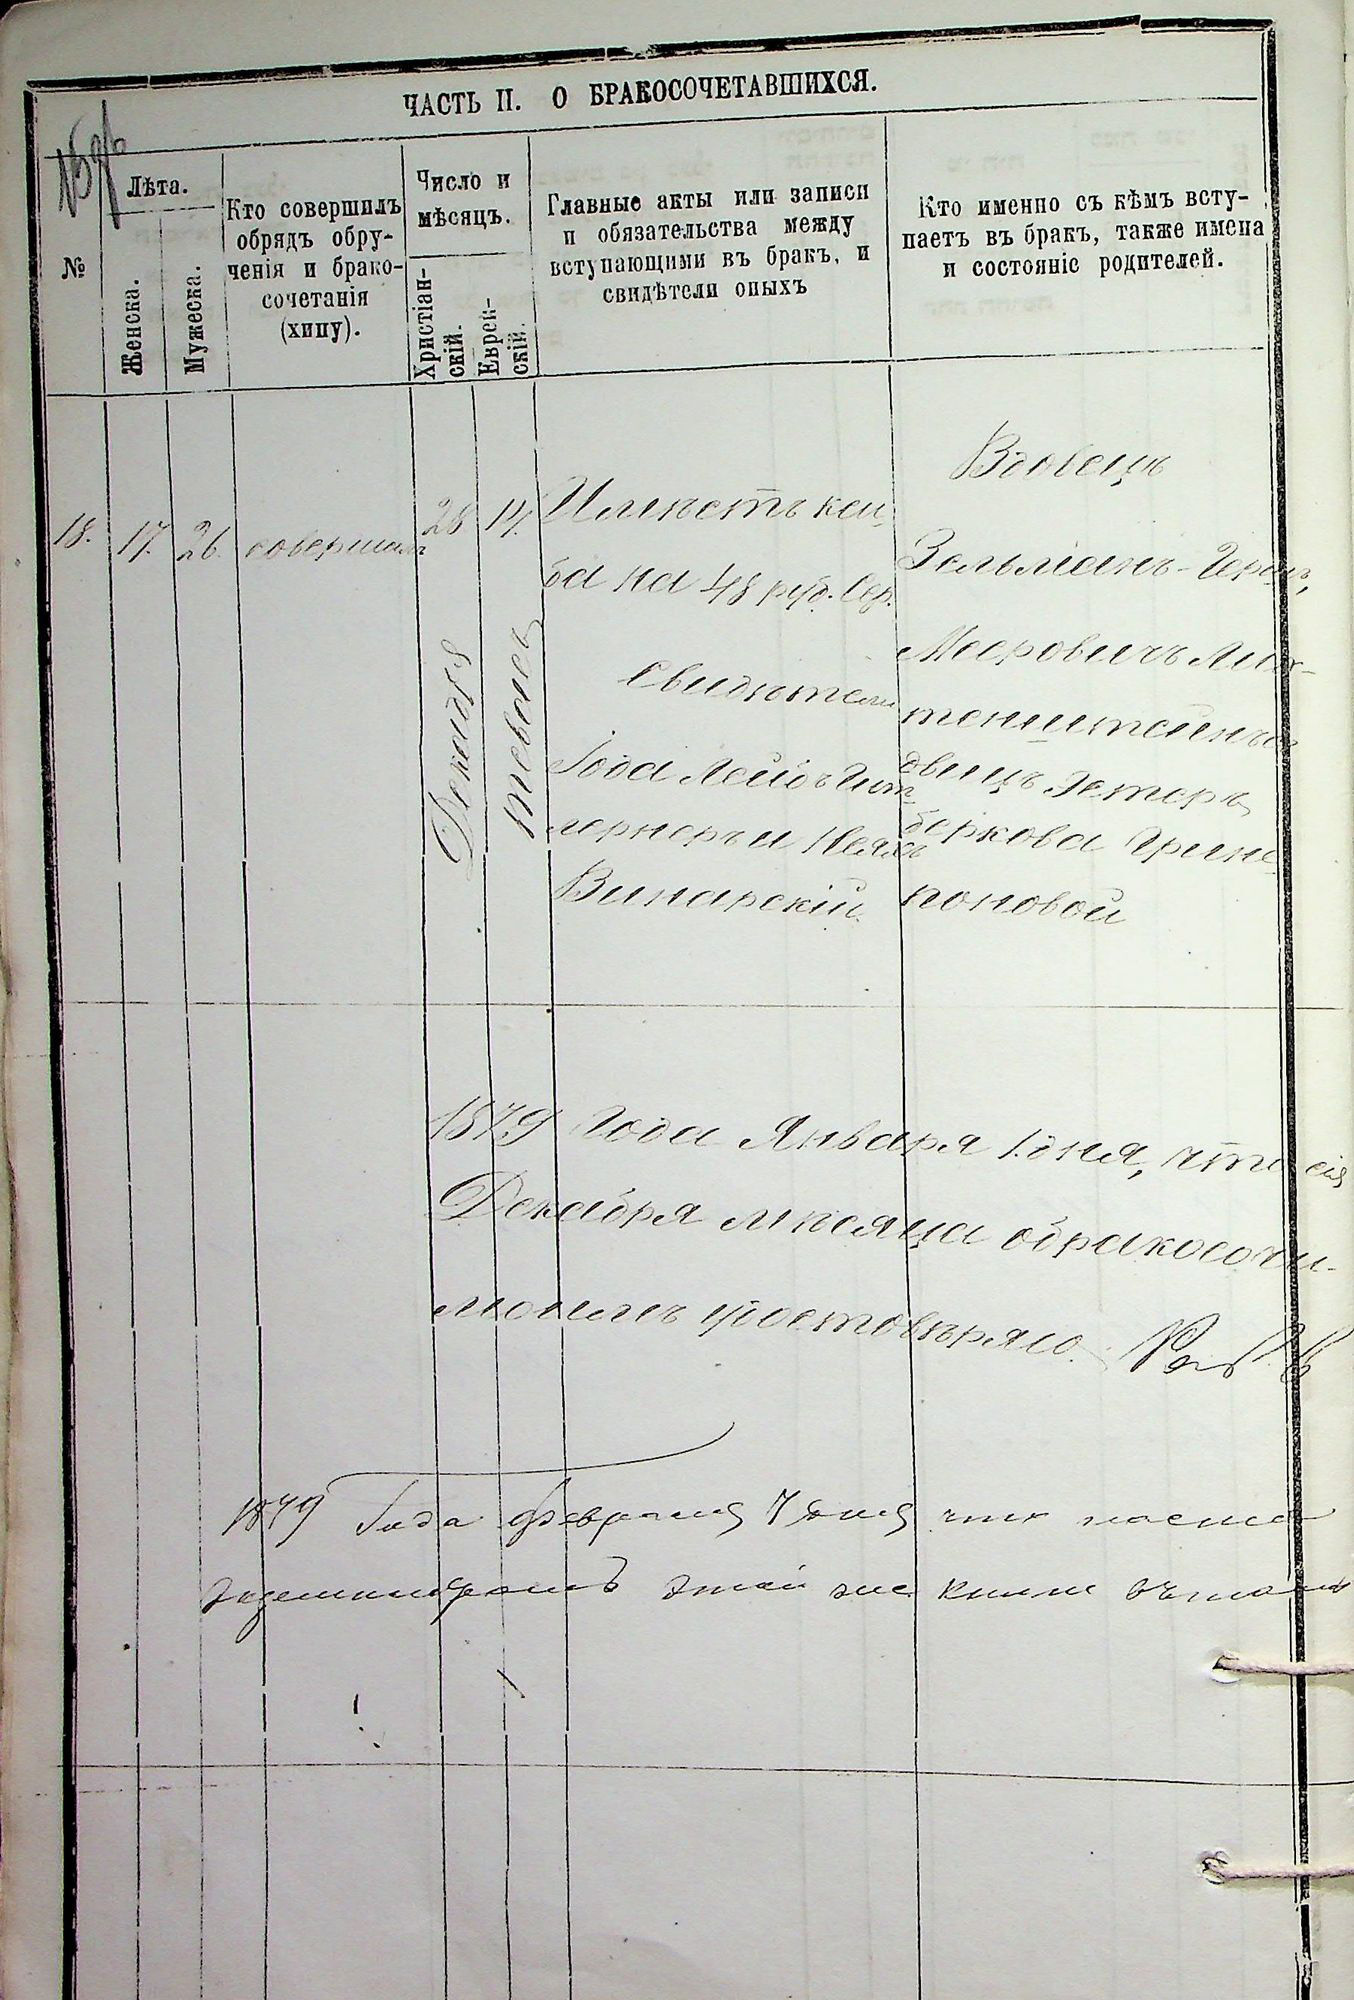 ЧАСТЬ II. О БРАКОСОЧЕТАВШИХСЯ.
№
Лѣта.
Женска.
Мужеска.
Кто совершилъ
обрядъ обру-
ченія и брако-
сочетанія
(хипу).
Число и
мѣсяцъ.
Христіан-
скій.
Еврей-
скій.
Главные акты или записи
и обязательства между
вступающими въ бракъ, и
свидѣтели оныхъ
Кто именно съ кѣмъ всту-
паетъ въ бракъ, также имена
и состояніе родителей.
18.
17.
26.
совершилъ
28
Декабря
14.
Имѣетъ кеи
ба на 48 руб. Сер.
Свидѣтели
Іода Лейбъ
лернеръ и
Винарскій.
Вдовецъ
Зельманъ-Герш,
Мееровичъ Лих-
тенштейнъ съ
двицъ Эстеръ
берковa Грин
поновой
1879 Года Января 1 дня, что сія
Декабря мѣсяца обракосочи-
удостовѣряю. Раб. В
1879 Года Февраля 7 дня что
экземпляромъ этой же книги